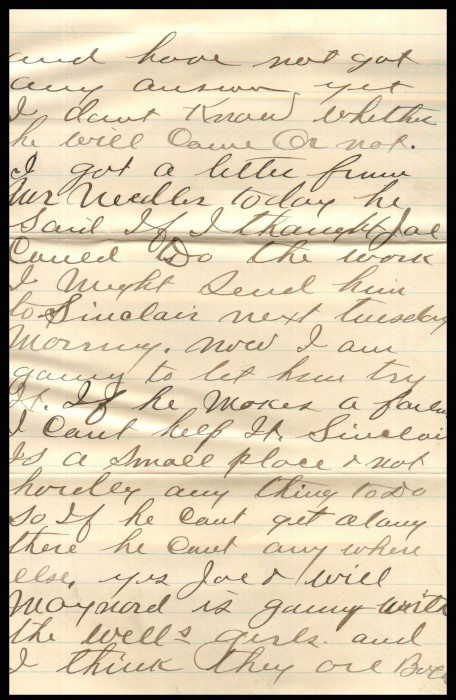 and have not got
any answer yet
I dont Know whether
he will Come Or not.
I got a letter from
Mr Needles today he
Said If I thought Joe
Could Do the work
I Might Send him
to Sinclair next tuesday
Morning. now I am
going to let him try
It. If he Makes a
I Cant help It. Sinclair
Is a Small place & not
hardley any thing to do
So If he Cant get along
there he Cant any where
else. yes Joe & will
Maynord is going with
the wells girls. and
I think they are